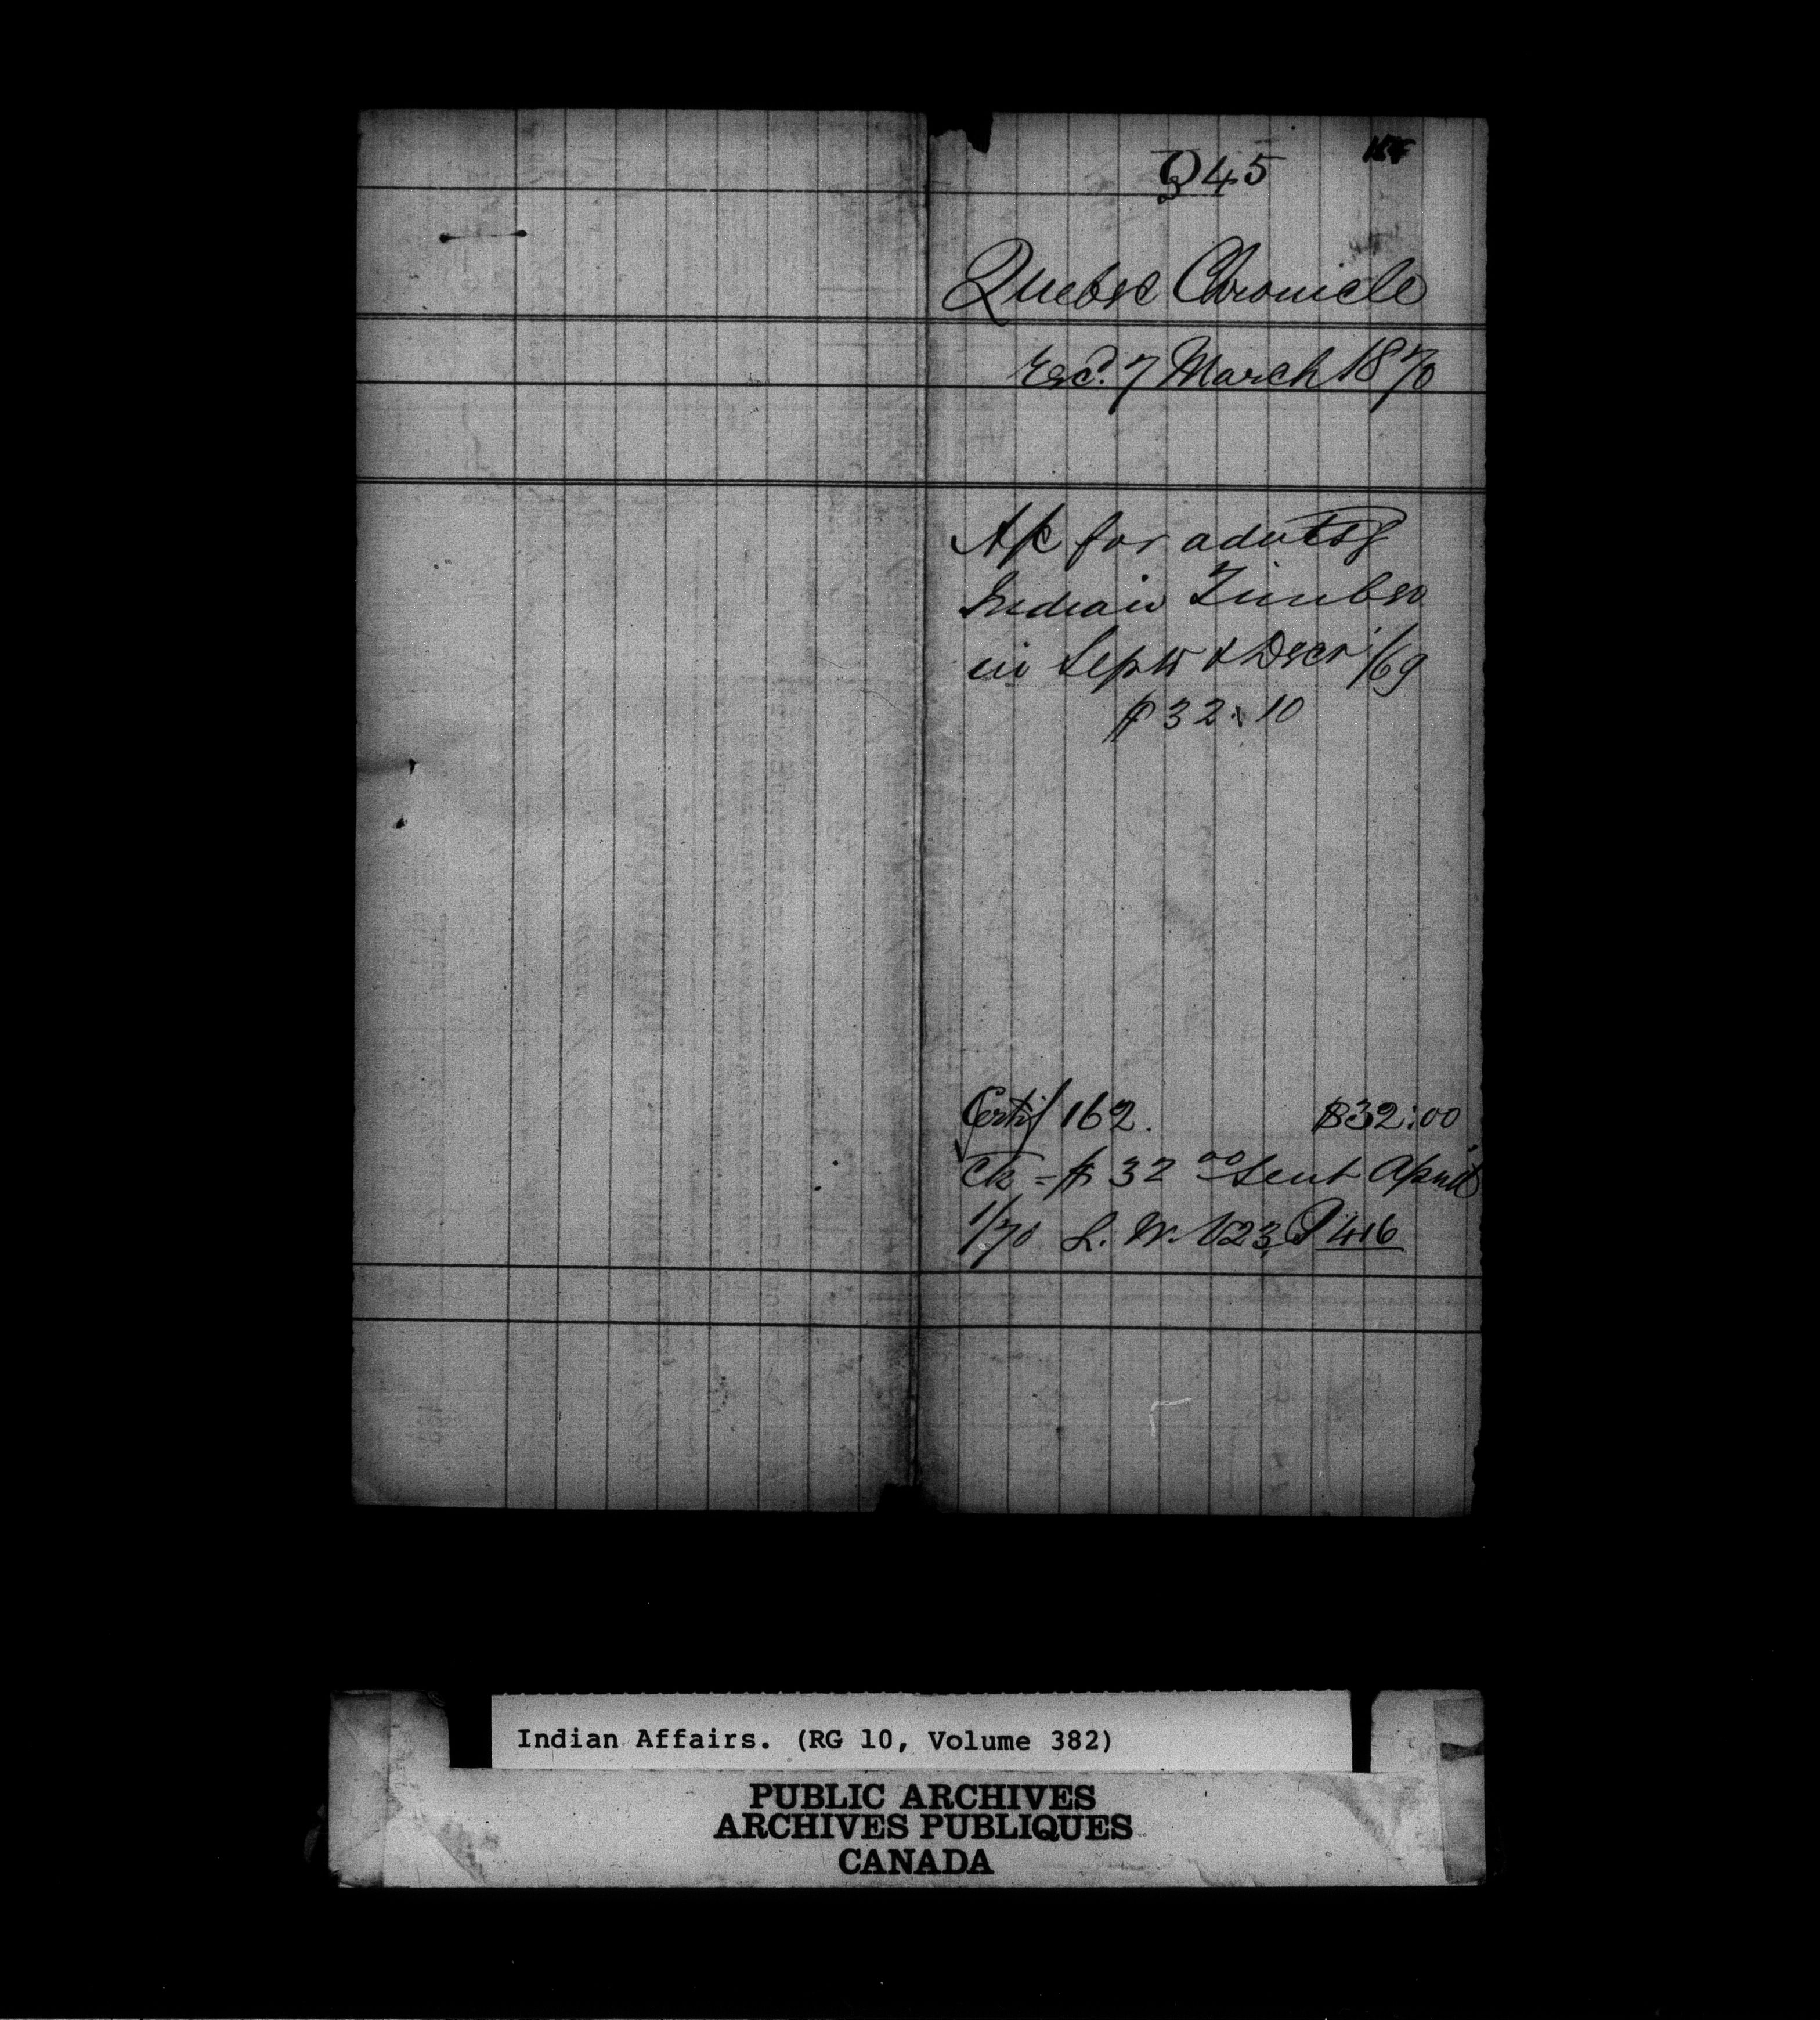 Q45
Quebec Chronicle
recd. 7 March 1870
A/c for advtsg
Indian Timber
in Septr & Decr /69
$32.10
Certif 162. $32:00
Ck = $32 00 sent April
1/70 L. W. V23, P 416
Indian Affairs. (RG 10, Volume 382)
PUBLIC ARCHIVES
ARCHIVES PUBLIQUES
CANADA